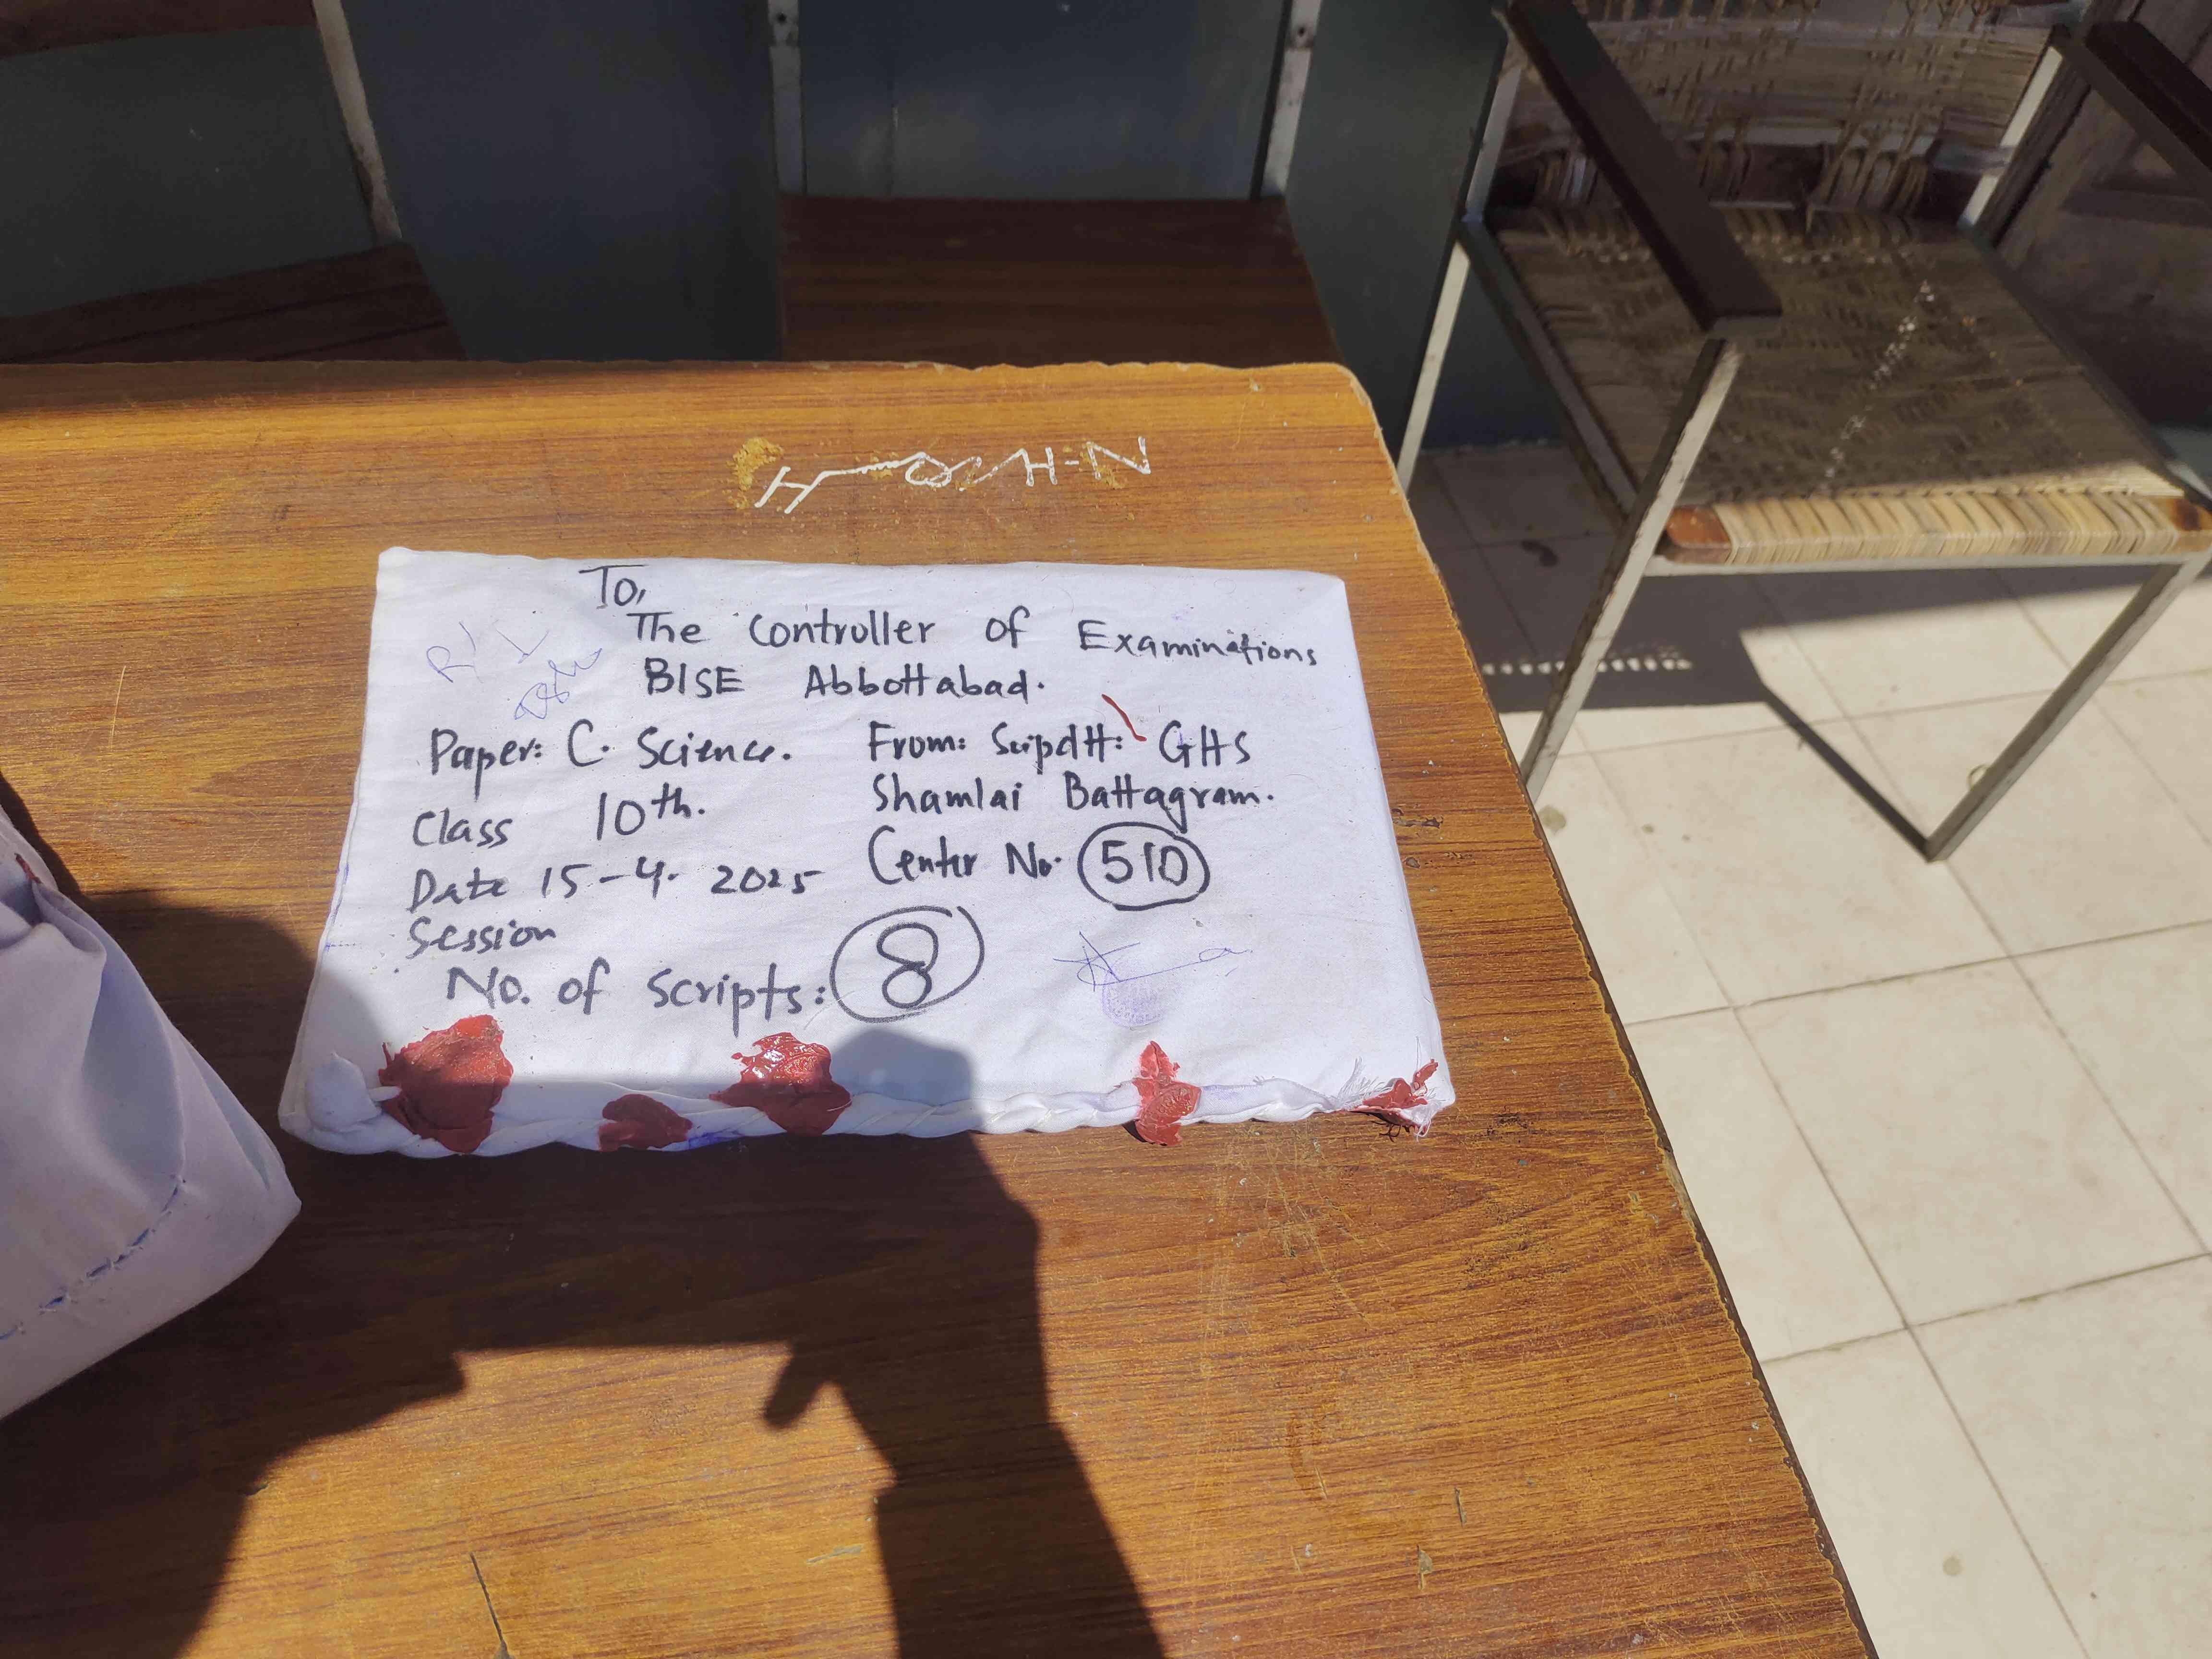 To,
The Controller of Examinations
BISE Abbottabad.
Paper: C. Science.
Class 10th.
Date 15-4-2025
Session
No. of Scripts: 8
From: Supdtt: GHS
Shamlai Battagram.
Center No. 510